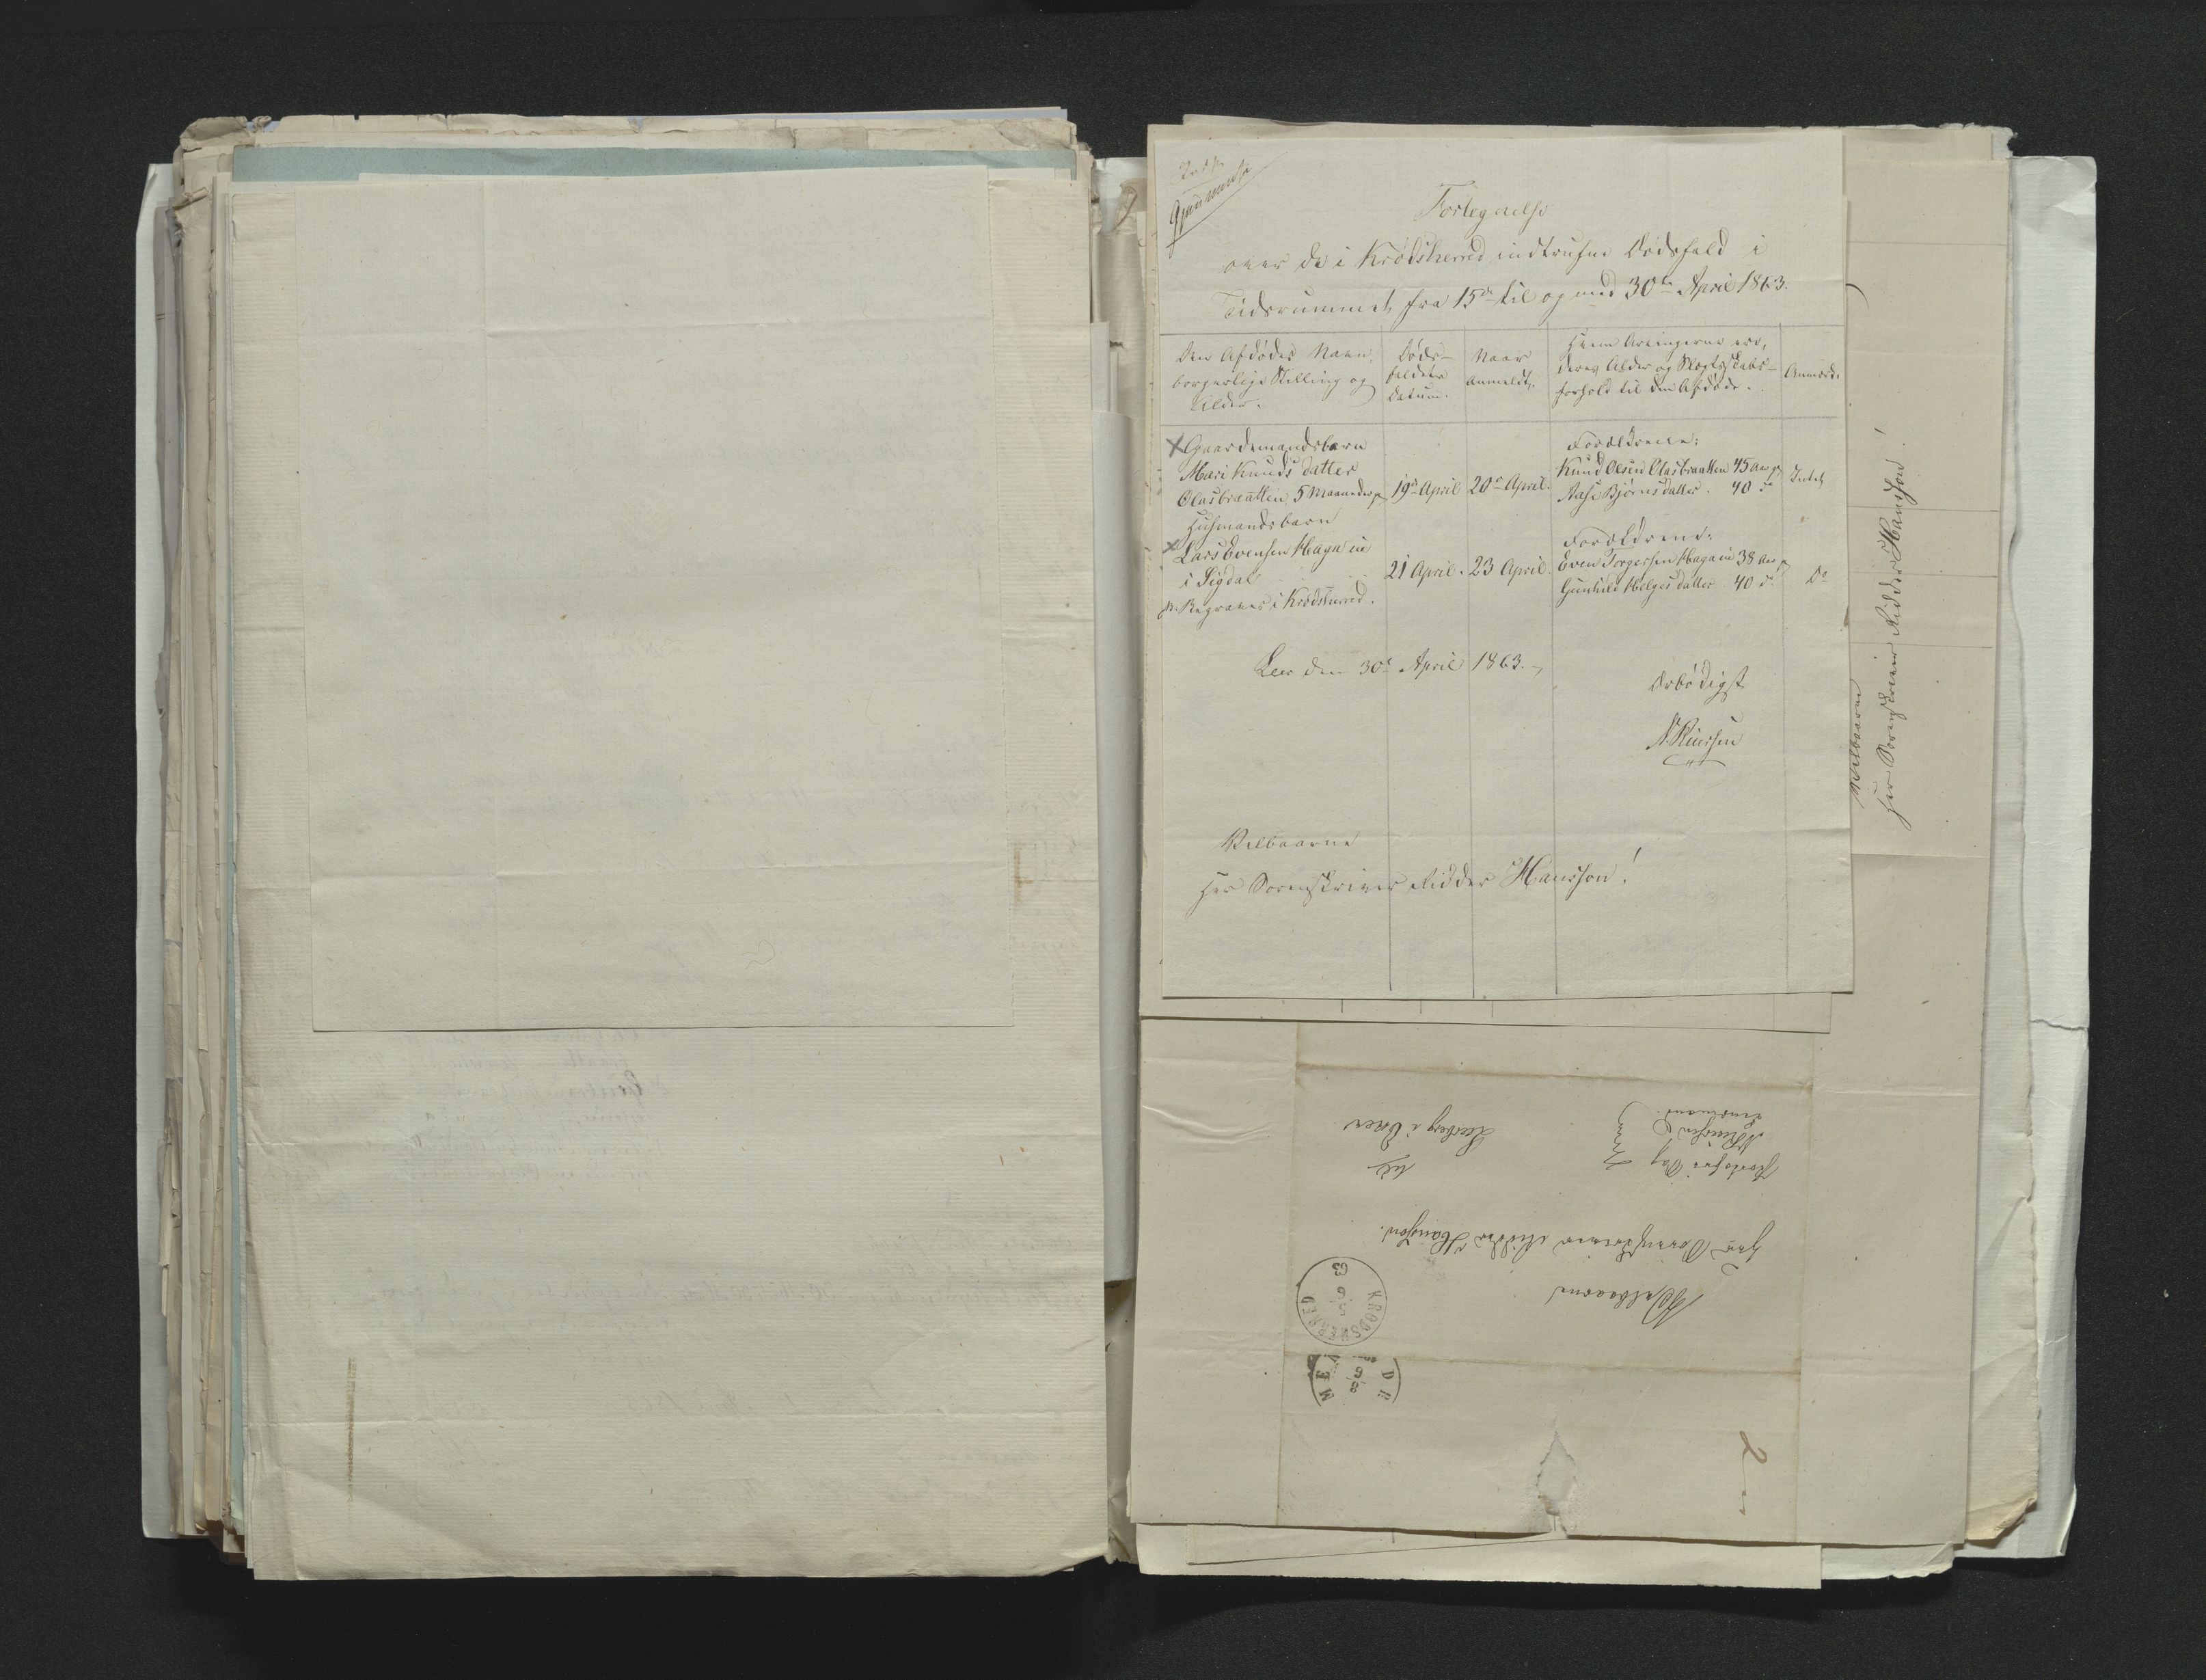 Indk.
Gjennemseet
Fortegnelse
over de i Krødsherred indtrufne Dødsfald i
Tidsrummet fra 15de til og med 30te April 1863.
Den Afdødes Navn,
borgerlige Stilling og
Alder.
Døds-
faldets
Datum.
Naar
anmeldt.
Hvem Arvingerne ere,
deres Alder og Slægtskabs-
forhold til den Afdøde.
Anmærk.
Gaardmandsbarn
Mari Knudsdatter
Olasbraatten 5 Maaneder gl.
19de April
20de April.
Forældrene:
Knud Olsen Olasbraatten 45 Aar gl.
Aase Bjørnsdatter. 40 do
Intet
Husmandsbarn
Lars Evensen Hagaen
i Sigdal
NB. Begraves i Krødsherred.
21 April.
23 April.
Forældrene:
Even Torgersen Hagaen 38 Aar gl.
Gunhild Helgesdatter 40 do
Do
Leer den 30te April 1863.
Ærbødigst
Velbaarne
Herr Sorenskriver Ridder Hansson!
Velbaarne
Herr Sorenskriver Ridder Hansson!
Velbaarne
Herr Sorenskriver Ridder Hansson.
til
Portofri Sag
Lensmand.
KRØDSHERRED
DR
MEN